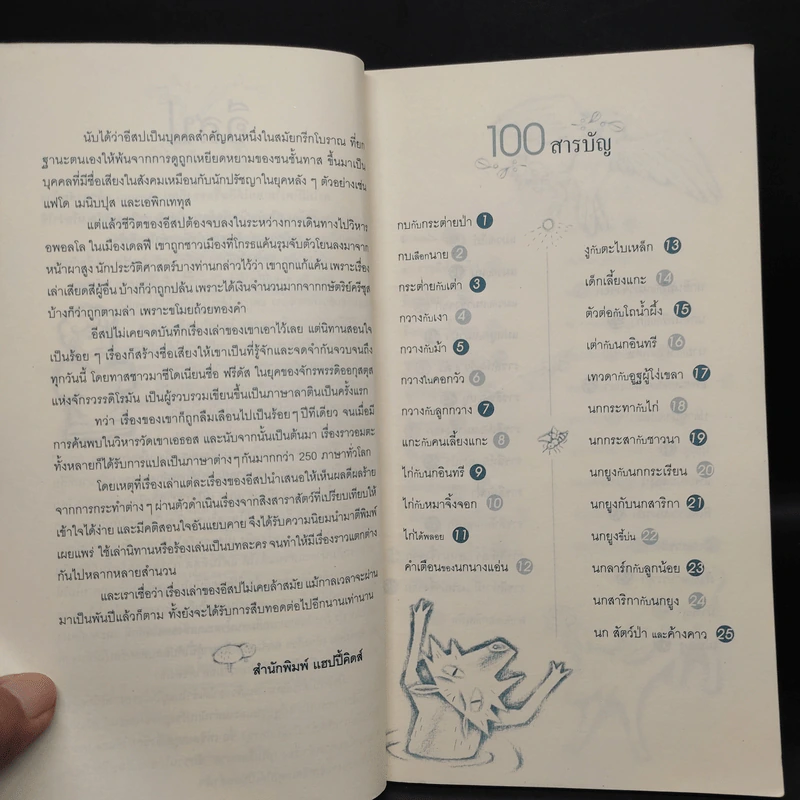 นับได้ว่าอีสปเป็นบุคคลสำคัญคนหนึ่งในสมัยกรีกโบราณ ที่ยก
ฐานะตนเองให้พ้นจากการดูถูกเหยียดหยามของชนชั้นทาส ขึ้นมาเป็น
บุคคลที่มีชื่อเสียงในสังคมเหมือนกับนักปรัชญาในยุคหลัง ๆ ตัวอย่างเช่น
แฟโด เมนิบปุส และเอพิกเททุส
แต่แล้วชีวิตของอีสปต้องจบลงในระหว่างการเดินทางไปวิหาร
อพอลโล ในเมืองเดลฟี เขาถูกชาวเมืองที่โกรธแค้นรุมจับตัวโยนลงมาจาก
หน้าผาสูง นักประวัติศาสตร์บางท่านกล่าวไว้ว่า เขาถูกแก้แค้น เพราะเรื่อง
เล่าเสียดสีผู้อื่น บ้างก็ว่าถูกปล้น เพราะได้เงินจำนวนมากจากกษัตริย์ครีซุส
บ้างก็ว่าถูกตามล่า เพราะขโมยถ้วยทองคำ
อีสปไม่เคยจดบันทึกเรื่องเล่าของเขาเอาไว้เลย แต่นิทานสอนใจ
เป็นร้อย ๆ เรื่องก็สร้างชื่อเสียงให้เขาเป็นที่รู้จักและจดจำกันจวบจนถึง
ทุกวันนี้ โดยทาสชาวมาซิโดเนียนชื่อ ฟรีดัส ในยุคของจักรพรรดิออกุสตุส
แห่งจักรวรรดิโรมัน เป็นผู้รวบรวมเขียนขึ้นเป็นภาษาลาตินเป็นครั้งแรก
ทว่า เรื่องของเขาก็ถูกลืมเลือนไปเป็นร้อยๆ ปีทีเดียว จนเมื่อมี
การค้นพบในวิหารวัดเขาเอธอส และนับจากนั้นเป็นต้นมา เรื่องราวอมตะ
ทั้งหลายก็ได้รับการแปลเป็นภาษาต่างๆ กันมากกว่า 250 ภาษาทั่วโลก
โดยเหตุที่เรื่องเล่าแต่ละเรื่องของอีสปนำเสนอให้เห็นผลดีผลร้าย
จากการกระทำต่างๆ ผ่านตัวดำเนินเรื่องจากสิงสาราสัตว์ที่เปรียบเทียบให้
เข้าใจได้ง่าย และมีคติสอนใจอันแยบคาย จึงได้รับความนิยมนำมาตีพิมพ์
เผยแพร่ ใช้เล่านิทานหรือร้องเล่นเป็นบทละคร จนทำให้มีเรื่องราวแตกต่าง
กันไปหลากหลายสำนวน
และเราเชื่อว่า เรื่องเล่าของอีสปไม่เคยล้าสมัย แม้กาลเวลาจะผ่าน
มาเป็นพันปีแล้วก็ตาม ทั้งยังจะได้รับการสืบทอดต่อไปอีกนานเท่านาน
สำนักพิมพ์ แฮปปี้คิดส์
100 สารบัญ
กบกับกระต่ายป่า 1
กบเลือกนาย 2
กระต่ายกับเต่า 3
กวางกับเงา 4
กวางกับม้า 5
กวางในคอกวัว 6
กวางกับลูกกวาง 7
แกะกับคนเลี้ยงแกะ 8
ไก่กับนกอินทรี 9
ไก่กับหมาจิ้งจอก 10
ไก่ได้พลอย 11
คำเตือนของนกนางแอ่น 12
งูกับตะไบเหล็ก 13
เด็กเลี้ยงแกะ 14
ตัวต่อกับโถน้ำผึ้ง 15
เต่ากับนกอินทรี 16
เทวดากับอูฐผู้โง่เขลา 17
นกกระทากับไก่ 18
นกกระสากับชาวนา 19
นกยูงกับนกกระเรียน 20
นกยูงกับนกสาริกา 21
นกยูงขี้บ่น 22
นกลาร์กกับลูกน้อย 23
นกสาริกากับนกยูง 24
นก สัตว์ป่า และค้างคาว 25